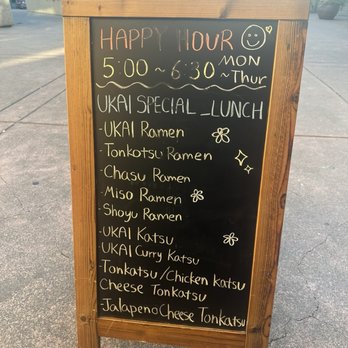 HAPPY HOUR
5:00 ~ 6:30 MON ~ Thur
UKAI SPECIAL LUNCH
-UKAI Ramen
-Tonkotsu Ramen
-Chasu Ramen
-Miso Ramen
-Shoyu Ramen
-UKAI Katsu
UKAI Curry Katsu
-Tonkatsu/Chicken katsu
Cheese Tonkatsu
-Jalapeno Cheese Tonkatsu